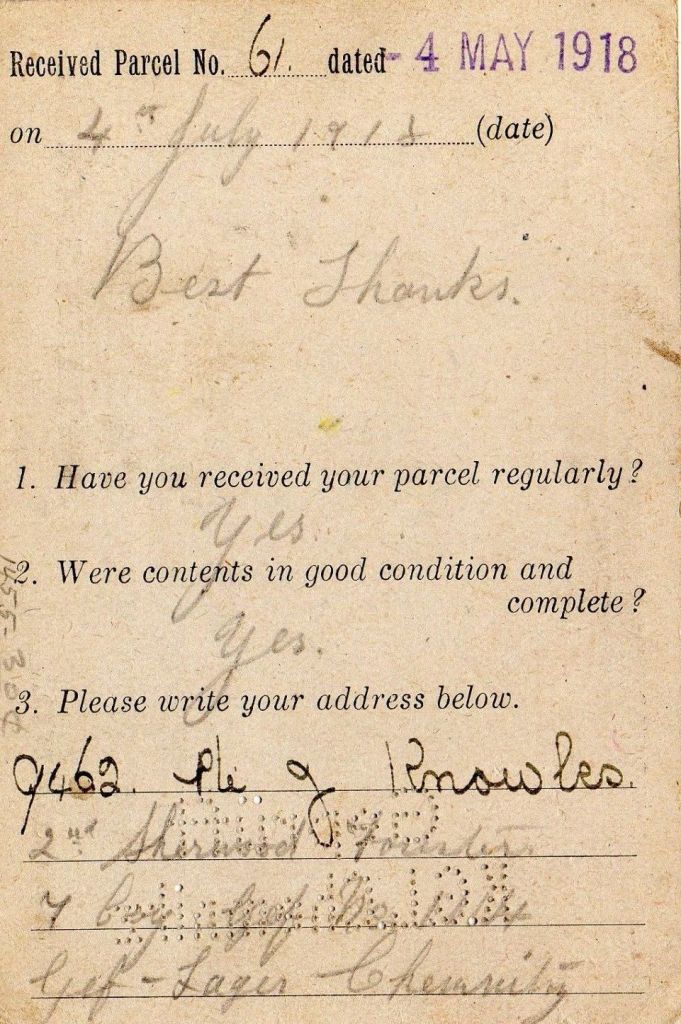 Received Parcel No. 61. dated - 4 MAY 1918
on 4th July 1918 (date)
Best Thanks.
1. Have you received your parcel regularly?
Yes.
2. Were contents in good condition and
complete?
Yes.
3. Please write your address below.
9462. Pte J Knowles.
2nd Sherwood Foresters
7 Coy Gef No
Gef - Lager Chemnitz